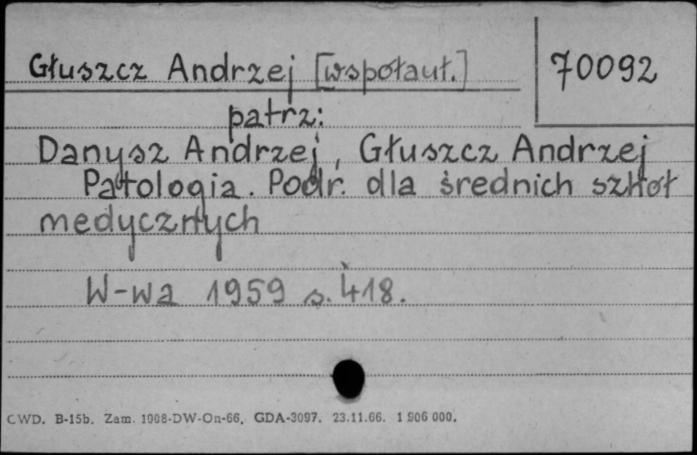 Głuszcz Andrzej [współaut.]
70092
patrz:
Danysz Andrzej, Głuszcz Andrzej
Patologia. Podr. dla średnich szkół
medycznych
W-wa 1959 s. 418.
CWD. B-15b. Zam. 1008-DW-On-66. GDA-3097. 23.11.66. 1 906 000.